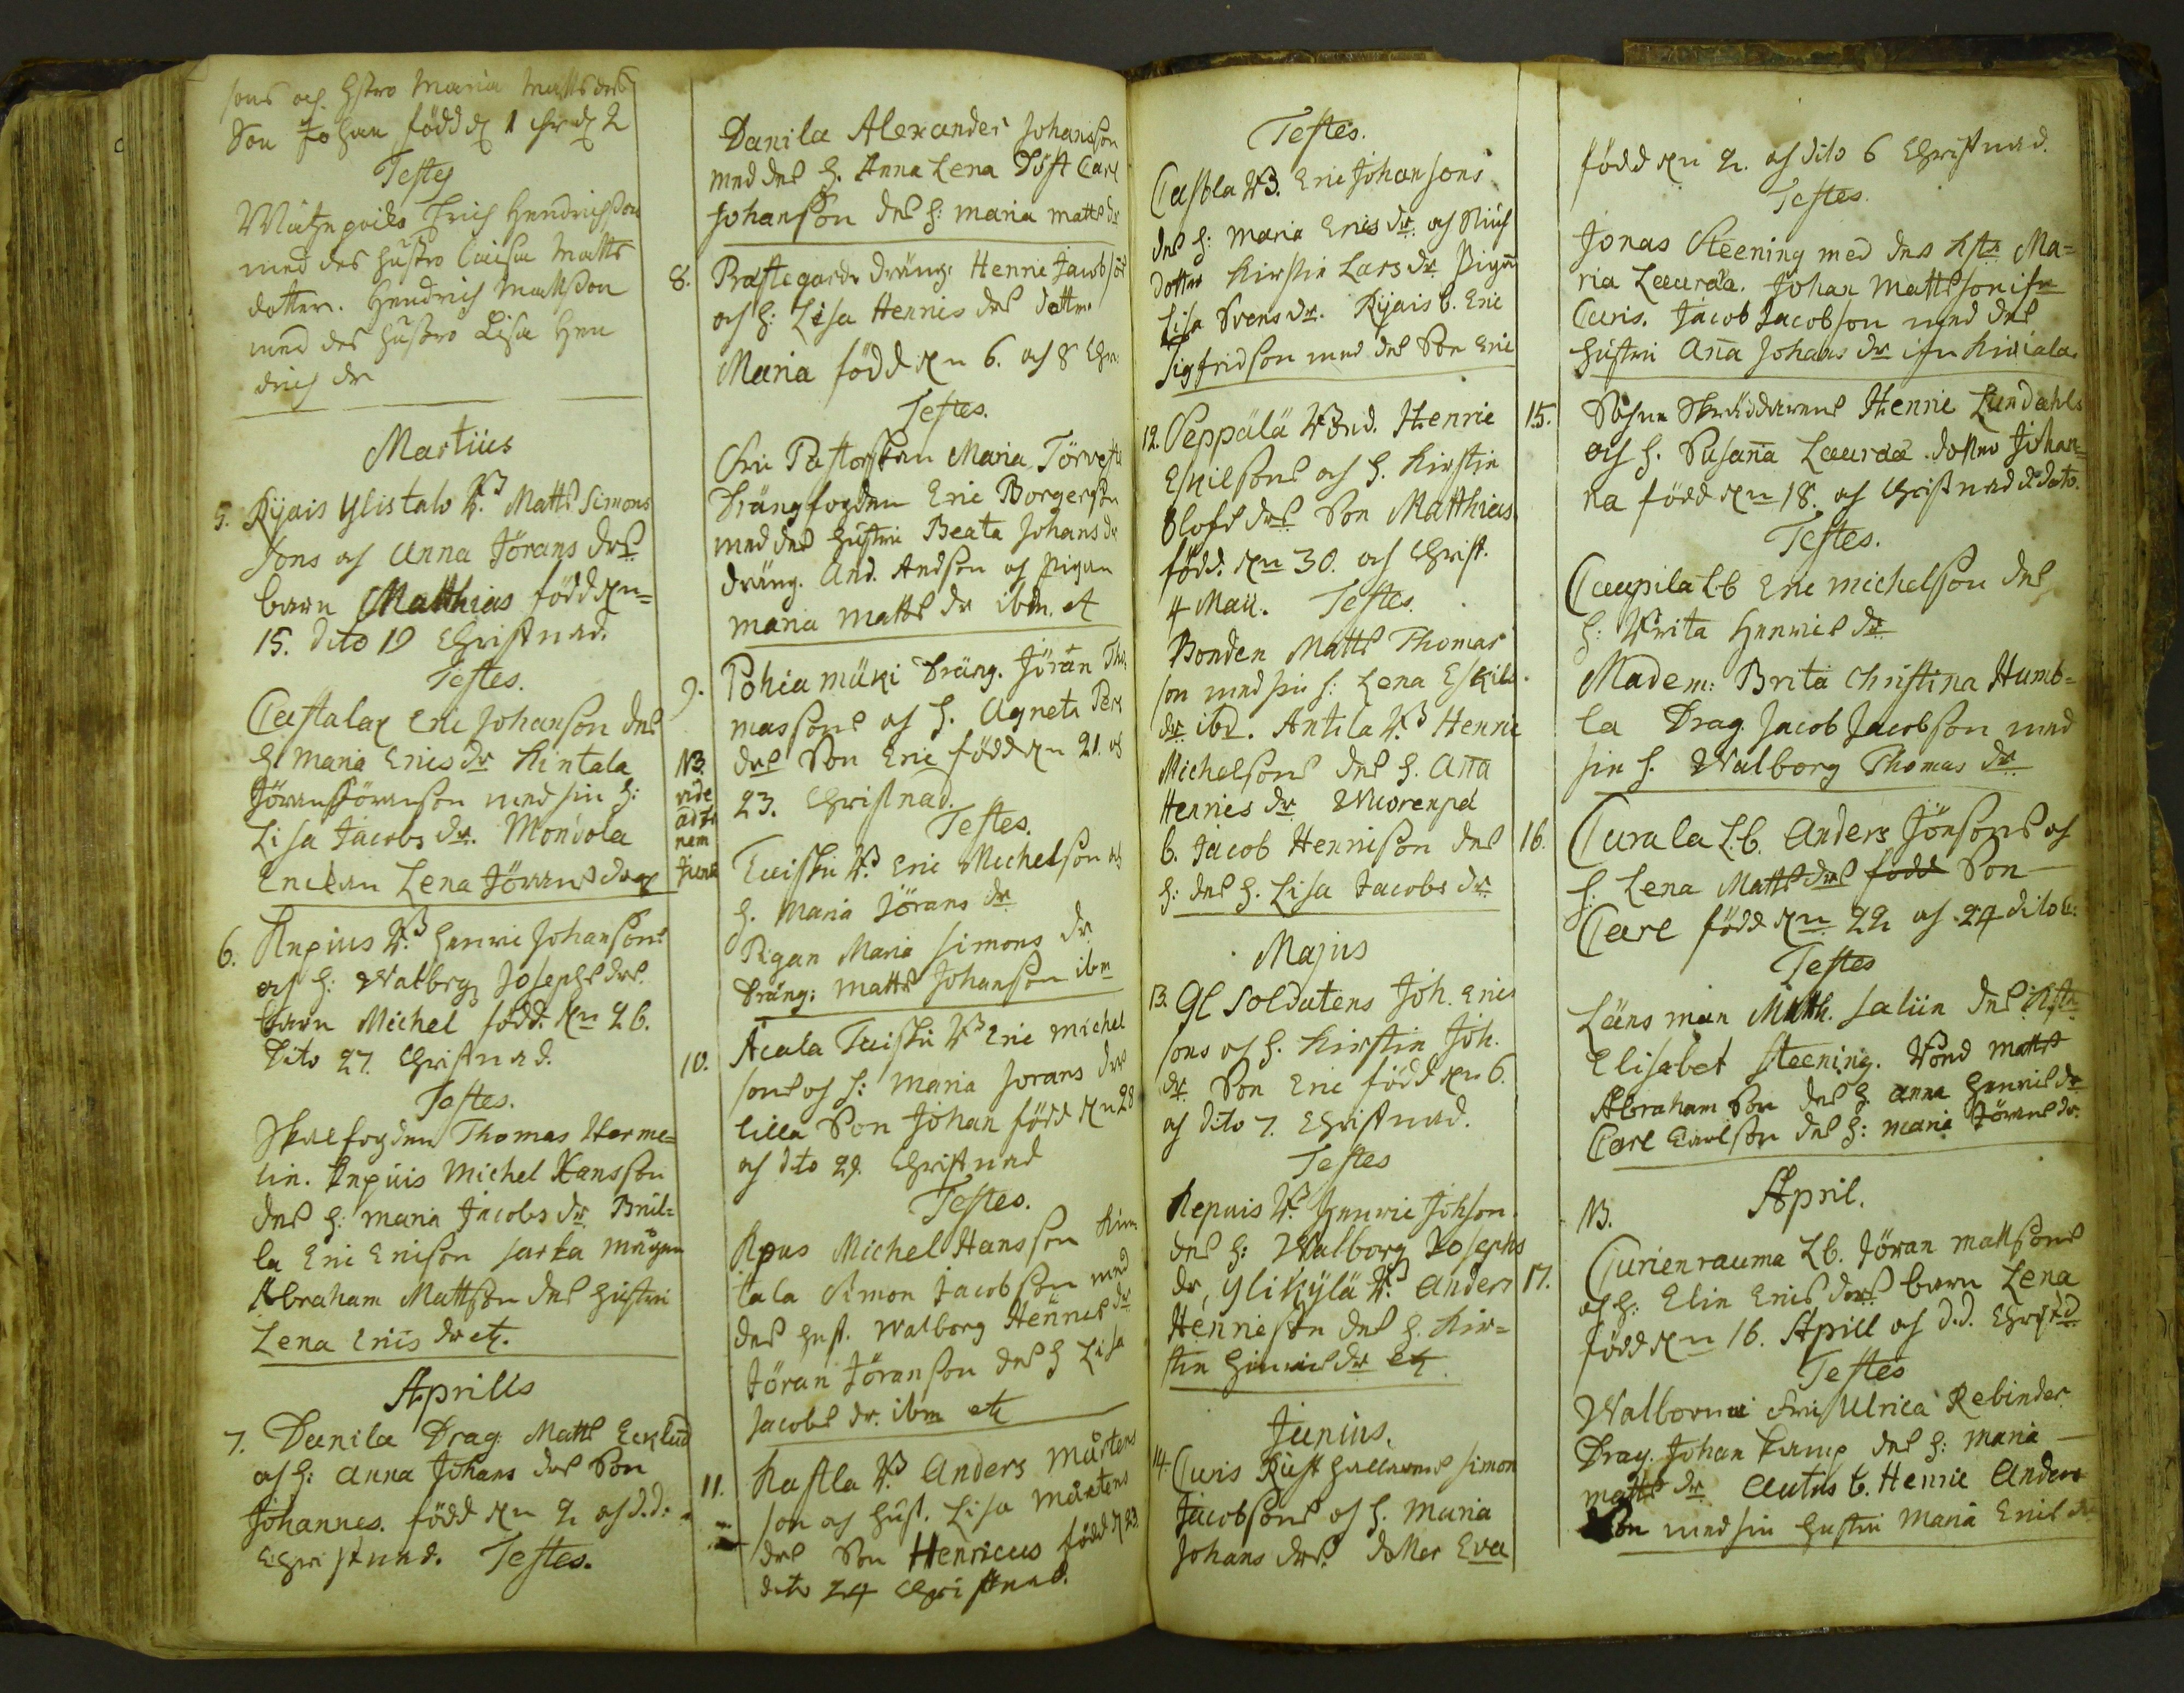 sons och hstro Maria Matts drs
Son Johan född d 1 chr d 2
Testes
Erich Hendrichson
med des hustro Caisa Matts
dotter. Hendrich Mattson
med des hustro Lisa Hen
drich dr
Martius
5. Kijais Ylistalo B. Matts Simons
sons och Anna Jörans drs
barn Matthias född den
15. dito 19 Christnad.
Testes.
Castalax Eric Johanson des
h Maria Erics dr Kintala
Jöran Jöranson med sin h:
Lisa Jacobs dr. Monbola
Enckan Lena Jörans dr
6. Knpius B. Henric Johansons
och h: Walbrg Josephs drs
barn Michel född. den 26.
dito 27. Christnad.
Testes.
Skalfogden Thomas Herme=
lin. Knpius Michel Hansson
des h: Maria Jacobs dr. Pril=
la Eric Ericson Sarka mågen
Abraham Mattson des hustru
Lena Erics dr etc.
Aprills
7. Danila Drag. Matts Ecklund
och h: Anna Johans drs Son
Johannes. född den 2 och d.d:
Christnad. Testes.
Danila Alexander Johansson
med des h. Anna Lena Carl
Johansson des h: Maria Matts dr
8. Prästegårds dräng. Henric Jacobson
och h: Lisa Henrics drs dotter
Maria född den 6. och 8 Chr:
Testes.
Fru Pastorskan Maria
Drängfogden Eric Borgerson
med des hustru Beata Johans dr
dräng. And. Andson och Pigan
Maria Matts dr ibm. et
9. Pohiamäki Dräng. Jöran Tho
massons och h. Agneta Pers
drs Son Eric född den 21. och
NB. vide ad fi nem Junii
23. Christnad.
Testes.
Tuiskn B. Eric Michelson och
h. Maria Jörans dr
Pigan Maria Simons dr
Dräng: Matts Johanson ibm
10. Acala Tuisku B Eric Michel
sons och h: Maria Jorans drs
lilla Son Johan född den 28
och dito 29. Christnad
Testes.
Knpus Michel Hansson Kin
tala Simon Jacobson med
des hust. Walborg Henrics dr
Jöran Jöranson des h Lisa
Jacobs dr. ibm etc
11. Kastla B Anders Mårtens
son och hust. Lisa Mårtens
drs Son Henricus född d 23.
dito 24 Christnad.
Testes.
Castla B. Eric Johansons
des h: Maria Erics dr. och
dotter Kirstin Lars dr Pigan
Lisa Svens dr. Kijais b. Eric
Sigfridson med des Son Eric
12. Peppälä Bond. Henric
Eskilsons och h. Kirstin
Olofs drs Son Matthias
född. den 30. och Christ.
4 Maii. Testes.
Bonden Matts Thomas
son med sin h: Lena Eskils
dr ibd. Antila B Henric
Michelsons des h. Anna
Henrics dr Wuorenpä
b. Jacob Henricson des
h: des h. Lisa Jacobs dr
Majus
13. Gl Soldatens Joh. Erics
sons och h. Kirstin Joh.
dr. Son Eric född den 6.
och dito 7. Christnad.
Testes
Kepuis B. Henric Johson.
des h: Walborg Josephs
dr, Ylikylä B. Anders
Henricson des h. Kir=
stin Henrics dr etc
Junius.
14. Curis Rusthållarens Simon
Jacobsons och h. Maria
Johans drs. dotter Eva
född den 2. och dito 6 Christnad.
Testes.
Jonas Steening med des hstr Ma=
ria Laurda. Johan Mattson ifr
Curis. Jacob Jacobson med des
hustru Anna Johans dr ifr Kiviala
15. Sockne Skräddarens Henric Lundahls
och h. Susanna Laurda dotter Johan=
na född den 18. och Christnad d. dato.
Testes.
Caupila L.b Eric Michelson des
h: Brita Henrics dr
Madem: Brita Christina Humb=
la Drag. Jacob Jacobson med
sin h. Walborg Thomas dr
16. Turala L.b. Anders Jönsons och
h. Lena Matts drs född Son
Carl född den 22 och 24 dito C:
Testes
Länsman Matth. Saliin des hstr
Elisabet Steening. Bond Matts
Abraham Son des h. Anna Henrics dr
Carl Carlson des h: Maria Jörans dr.
NB. April.
17. Curienrauma L.b. Jöran Mattsons
och h: Elin Erics dors barn Lena
född den 16. April och d.d. Christd
Testes
Walborna Fru Ulrica Rebinder
Drag. Johan Kamp des h: Maria
Matts dr Autus b. Henric Anders
son med sin hustru Maria Erics dr